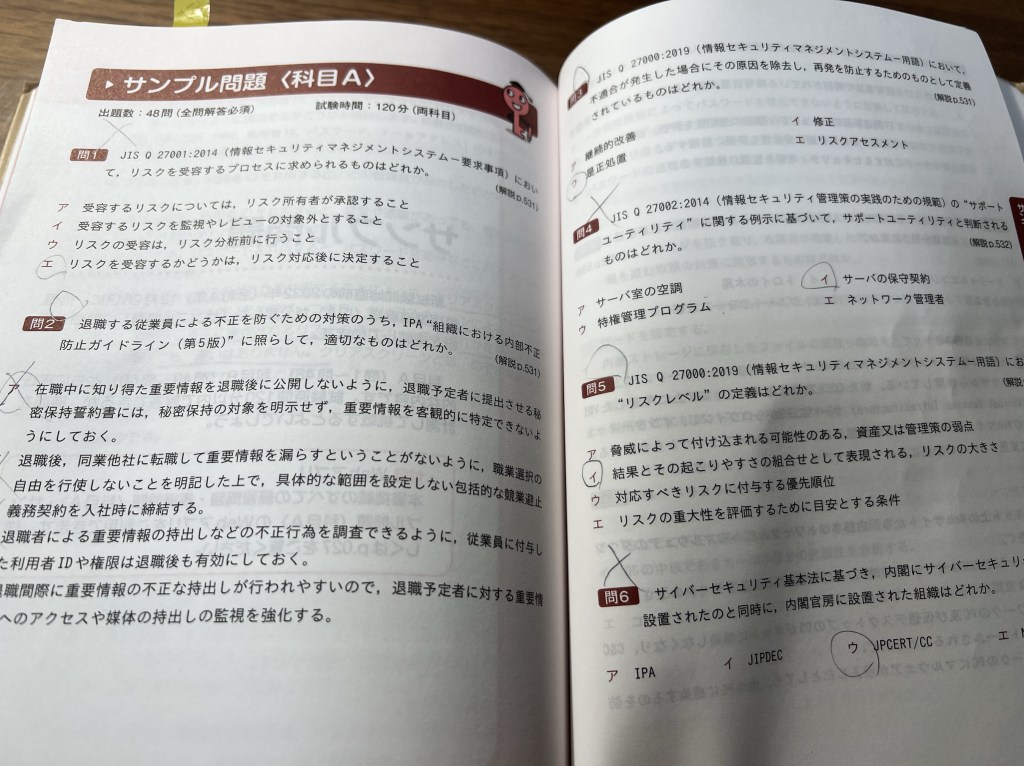 サンプル問題〈科目A〉
出題数：48問（全問解答必須）　試験時間：120分（両科目）
問1　JIS Q 27001:2014（情報セキュリティマネジメントシステムー要求事項）におい
て，リスクを受容するプロセスに求められるものはどれか。
（解説p.531）
ア　受容するリスクについては，リスク所有者が承認すること
イ　受容するリスクを監視やレビューの対象外とすること
ウ　リスクの受容は，リスク分析前に行うこと
エ　リスクを受容するかどうかは，リスク対応後に決定すること
問2　退職する従業員による不正を防ぐための対策のうち，IPA“組織における内部不正
防止ガイドライン（第5版）”に照らして，適切なものはどれか。
（解説p.531）
ア　在職中に知り得た重要情報を退職後に公開しないように，退職予定者に提出させる秘
密保持誓約書には，秘密保持の対象を明示せず，重要情報を客観的に特定できないよ
うにしておく。
退職後，同業他社に転職して重要情報を漏らすということがないように，職業選択の
自由を行使しないことを明記した上で，具体的な範囲を設定しない包括的な競業避止
義務契約を入社時に締結する。
退職者による重要情報の持出しなどの不正行為を調査できるように，従業員に付与し
た利用者IDや権限は退職後も有効にしておく。
退職間際に重要情報の不正な持出しが行われやすいので，退職予定者に対する重要情
へのアクセスや媒体の持出しの監視を強化する。
問3　JIS Q 27000:2019（情報セキュリティマネジメントシステムー用語）において，
不適合が発生した場合にその原因を除去し，再発を防止するためのものとして定義
されているものはどれか。
（解説p.531）
ア　継続的改善　イ　修正
ウ　是正処置　エ　リスクアセスメント
問4　JIS Q 27002:2014（情報セキュリティ管理策の実践のための規範）の“サポート
ユーティリティ”に関する例示に基づいて，サポートユーティリティと判断される
ものはどれか。
（解説p.532）
ア　サーバ室の空調　イ　サーバの保守契約
ウ　特権管理プログラム　エ　ネットワーク管理者
問5　JIS Q 27000:2019（情報セキュリティマネジメントシステムー用語）にお
“リスクレベル”の定義はどれか。
（解説
ア　脅威によって付け込まれる可能性のある，資産又は管理策の弱点
イ　結果とその起こりやすさの組合せとして表現される，リスクの大きさ
ウ　対応すべきリスクに付与する優先順位
エ　リスクの重大性を評価するために目安とする条件
問6　サイバーセキュリティ基本法に基づき，内閣にサイバーセキュリテ
設置されたのと同時に，内閣官房に設置された組織はどれか。
ア　IPA　イ　JIPDEC　ウ　JPCERT/CC　エ